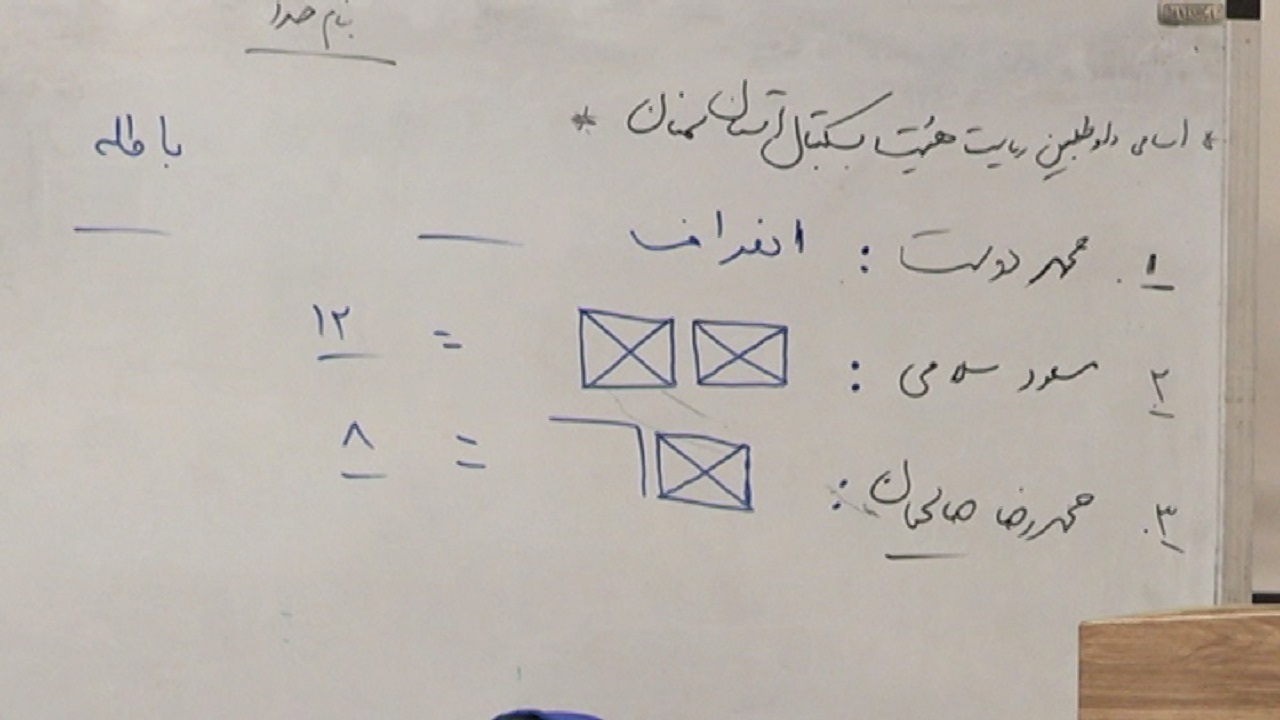 بنام خدا
* اسامی داوطلبین ریاست هیئت بسکتبال استان سمنان *
باطله
۱. محمد دوست : انصراف
۲ مسعود سلامی : = ۱۲
۳. محمدرضا صالحیان : = ۸